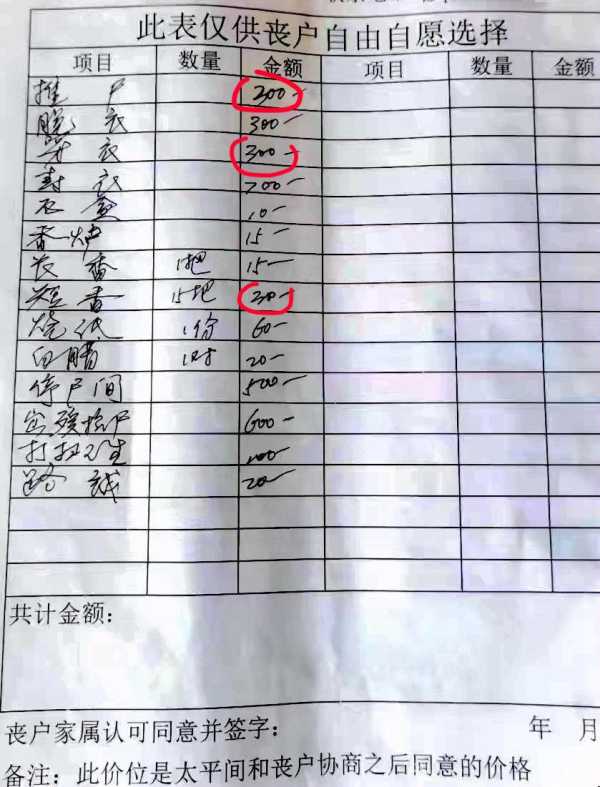 此表仅供丧户自由自愿选择
项目 数量 金额 项目 数量 金额
推尸 300-
脱衣 300-
穿衣 300-
寿衣 700-
15-
长香 1把 15-
短香 15把 30-
烧纸 1份 60-
白腊 1对 20-
停尸间 500-
600-
打扫卫生 100-
路 20-
共计金额:
丧户家属认可同意并签字: 年 月
备注:此价位是太平间和丧户协商之后同意的价格